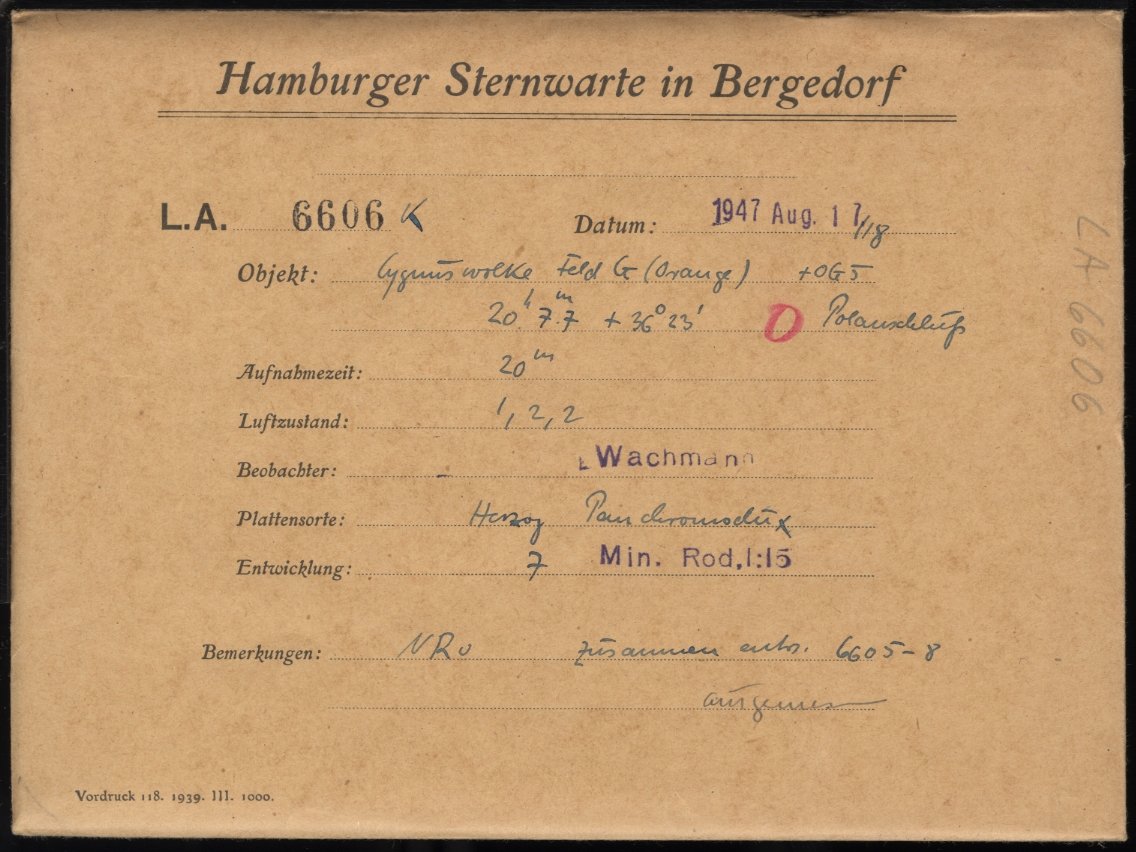 Hamburger Sternwarte in Bergedorf
L.A. 6606 K Datum: 1947 Aug. 17/18
Objekt: Cygnuswolke Feld G (Orange) +OG5
20h 7m.7 +36° 23' O Polanschluß
Aufnahmezeit: 20m
Luftzustand: 1, 2, 2
Beobachter: Wachmann
Plattensorte: Herzog Panchromodux
Entwicklung: 7 Min. Rod. 1:15
Bemerkungen: zusammen entw. 6605-8
ausgemessen
Vordruck 118. 1939. III. 1000.
LA 6606